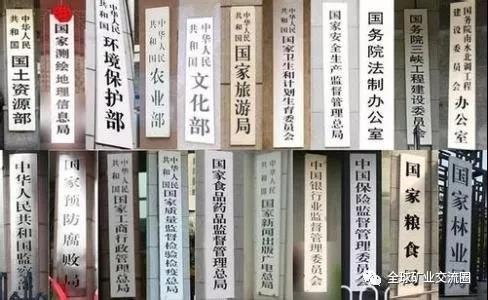 中华人民
共和国
国土资源部
国家测绘地理信息局
中华人民
共和国
环境保护部
中华人民
共和国
农业部
中华人民
共和国
文化部
中华人民
共和国
国家旅游局
中华人民
共和国
国家卫生和计划生育委员会
国家安全生产监督管理总局
国务院法制办公室
国务院三峡工程建设委员会
国务院南水北调工程
建设委员会
办公室
中华人民共和国监察部
国家预防腐败局
中华人民
共和国
国家工商行政管理总局
中华人民
共和国
国家质量监督检验检疫总局
国家食品药品监督管理总局
中华人民
共和国
国家新闻出版广电总局
中国银行业监督管理委员会
中国保险监督管理委员会
国家粮食
国家林业
全球矿业交流圈